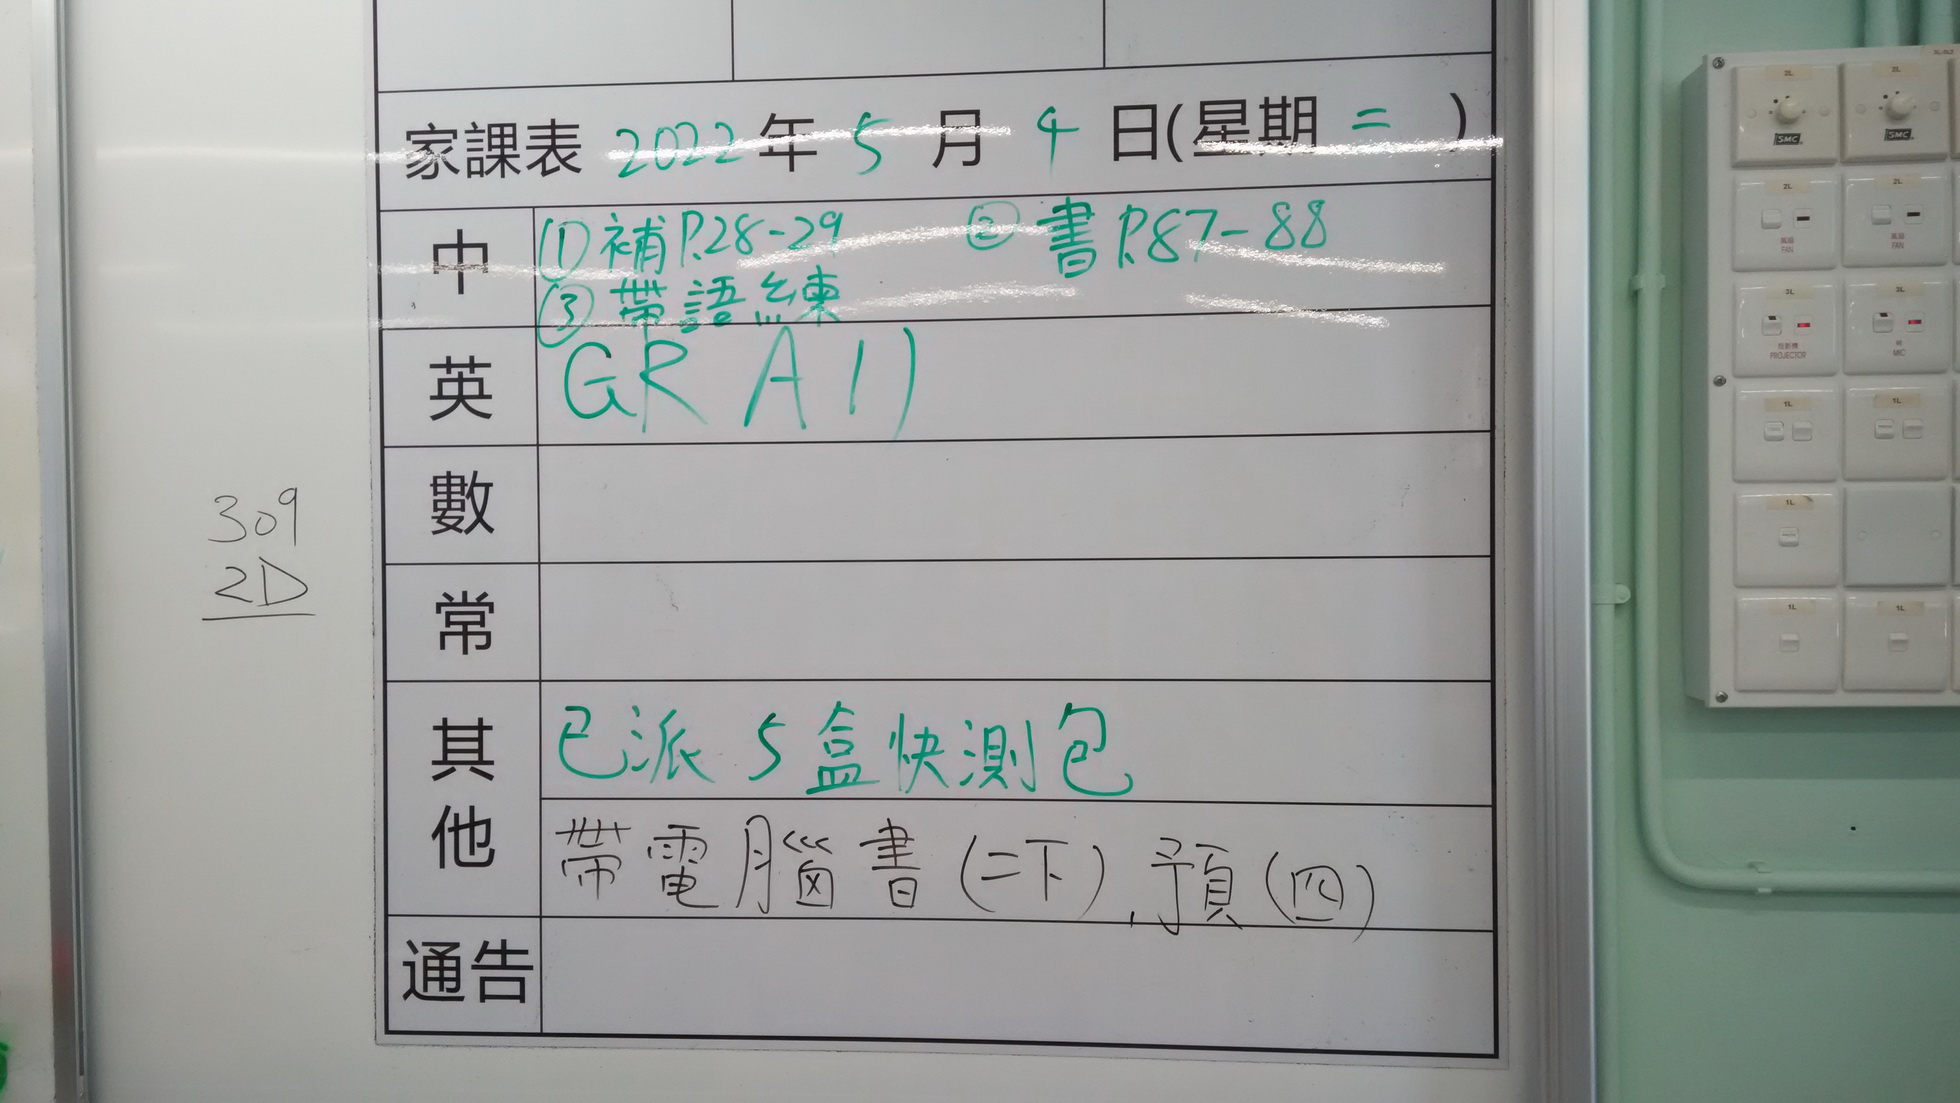 家課表 2022 年 5 月 4 日(星期 二 )
中
(1) 補 P.28-29 ② 書 P.87-88
③ 帶語練
英
GR A11
數
常
其他
已派 5 盒快測包
帶電腦書(二下), 預(四)
通告
309
2D
2L
2L
SMC
SMC
2L
2L
風扇
FAN
風扇
FAN
3L
3L
投影機
PROJECTOR
MIC
1L
1L
1L
1L
1L